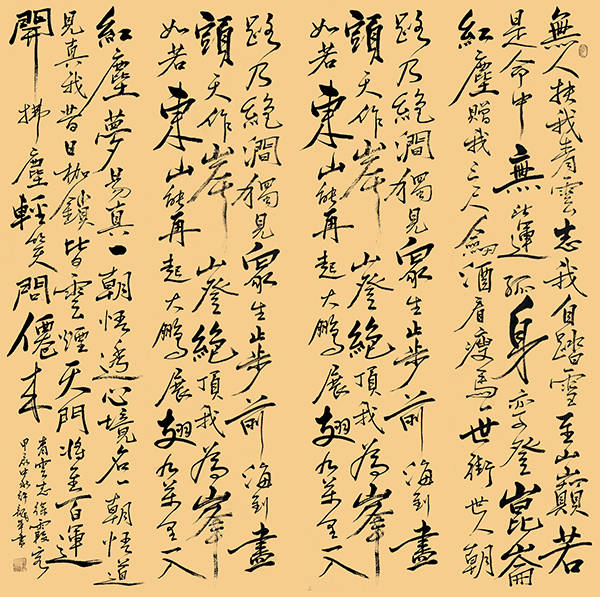 無人扶我青雲志我自踏雪至山巔若
是命中無此運孤身亦登崑崙
紅塵贈我三尺劍酒肴瘦馬一世街世人朝
路乃絕澗獨見眾生止步前海到盡
頭天作岸山登絕頂我為峯
如若東山能再起大鵬展翅九萬里一入
路乃絕澗獨見眾生止步前海到盡
頭天作岸山登絕頂我為峯
如若東山能再起大鵬展翅九萬里一入
紅塵夢易真一朝悟透心境名一朝悟道
見真我昔日枷鎖皆雲煙天門將至百運
開拂塵輕笑問僊來
青雲志徐霞客
甲辰中秋許書